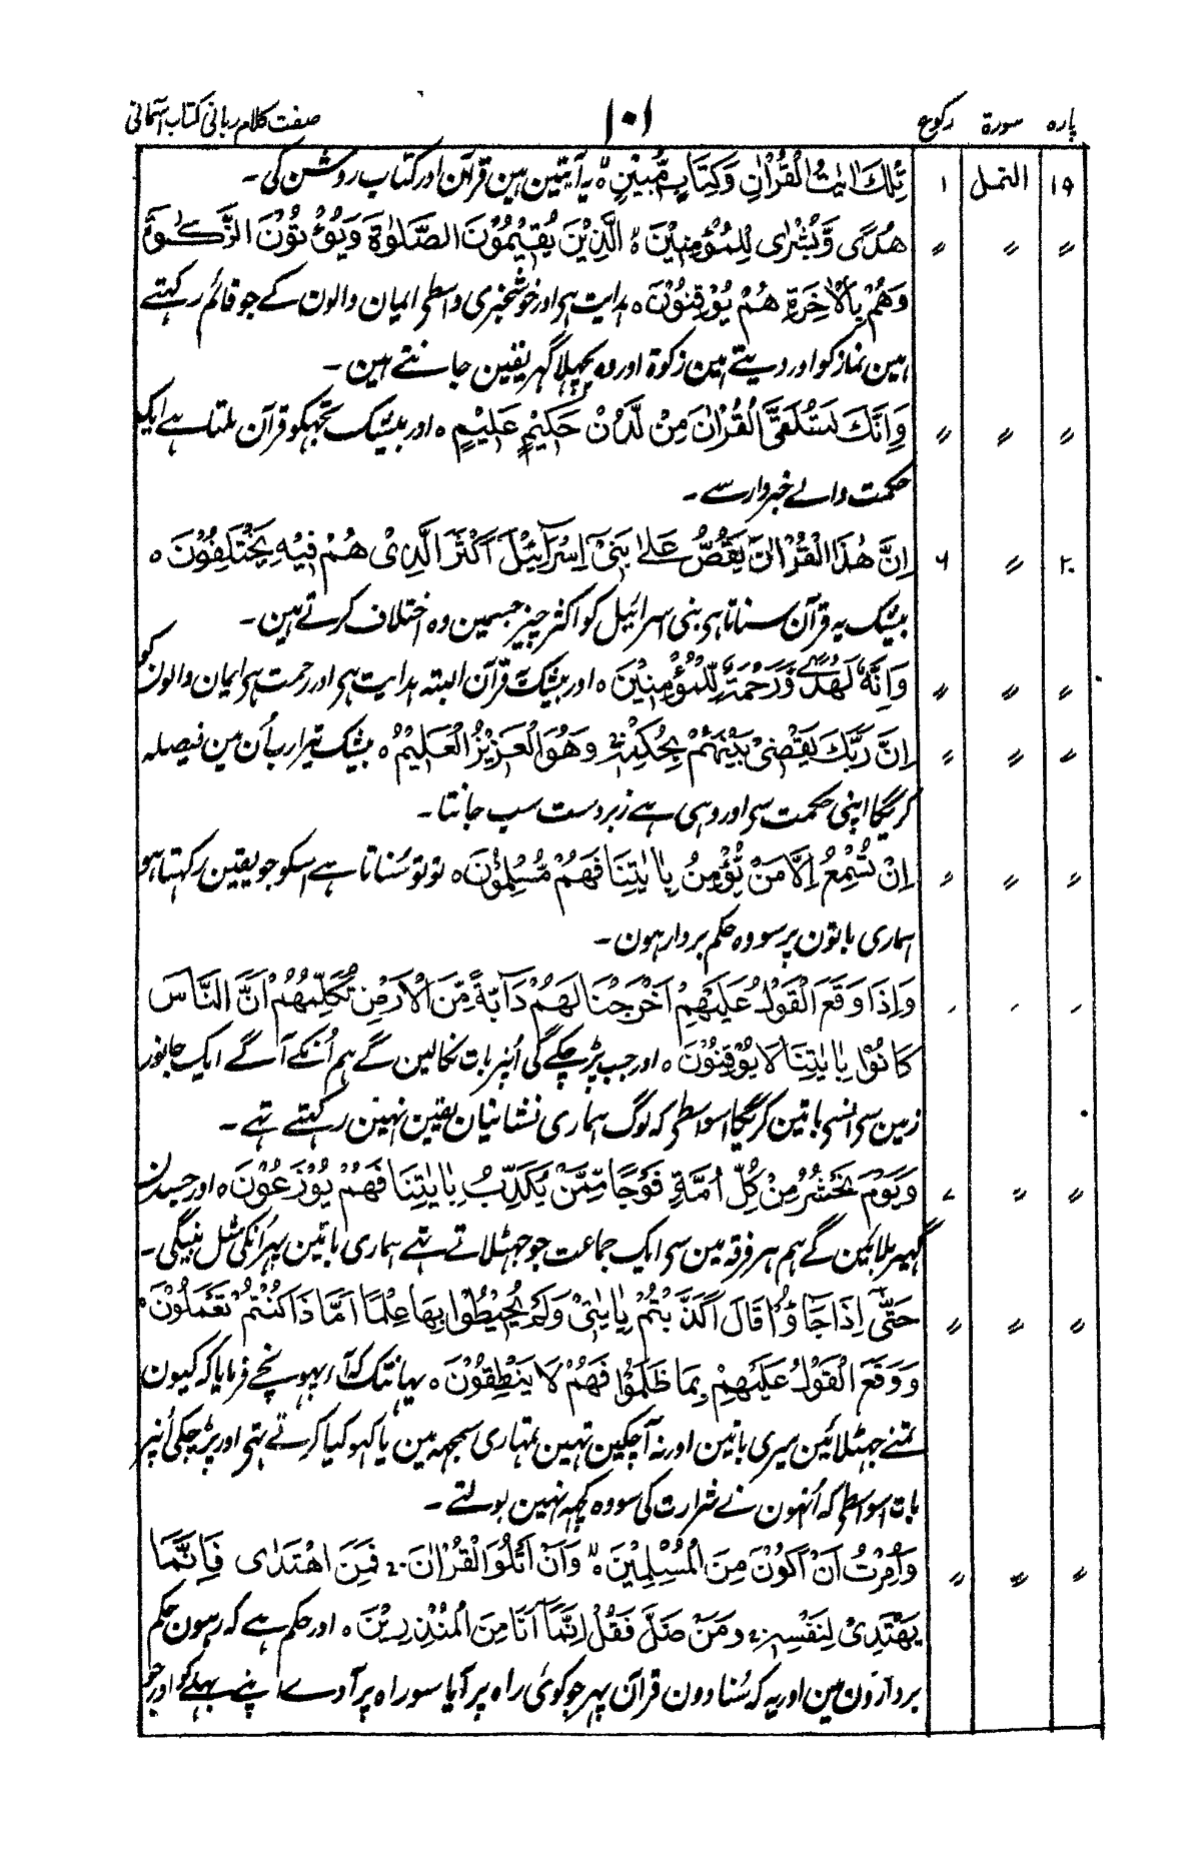 پارہ سورۃ رکوع ۱۰۱ صفت کلام ربانی کتاب آسمانی
۱۹ النمل ۱ تِلْكَ اٰيٰتُ الْقُرْاٰنِ وَكِتَابٍ مُّبِيْنٍ ۙ یہ آیتین ہین قرآن اور کتاب روشن کی ۔
〃 〃 〃 هُدًى وَّبُشْرٰى لِلْمُؤْمِنِيْنَ ۙ الَّذِيْنَ يُقِيْمُوْنَ الصَّلٰوةَ وَيُؤْتُوْنَ الزَّكٰوةَ
وَهُمْ بِالْاٰخِرَةِ هُمْ يُوْقِنُوْنَ ۝ ہدایت ہی اور خوشخبری واسطی ایمان والون کے جو قائم رکہتے
ہین نماز کو اور دیتے ہین زکوۃ اور وہ پچہلا گہر یقین جانتے ہین ۔
〃 〃 〃 وَاِنَّكَ لَتُلَقَّى الْقُرْاٰنَ مِنْ لَّدُنْ حَكِيْمٍ عَلِيْمٍ ۝ اور بیشک تجہکو قرآن ملتا ہے ایک
حکمت والے خبردار سے ۔
۲۰ 〃 ۶ اِنَّ هٰذَا الْقُرْاٰنَ يَقُصُّ عَلٰى بَنِىْٓ اِسْرَآئِيْلَ اَكْثَرَ الَّذِىْ هُمْ فِيْهِ يَخْتَلِفُوْنَ ۝
بیشک یہ قرآن سناتا ہی بنی اسرائیل کو اکثر چیز جسمین وہ اختلاف کرتے ہین ۔
〃 〃 〃 وَاِنَّهٗ لَهُدًى وَّرَحْمَةٌ لِّلْمُؤْمِنِيْنَ ۝ اور بیشک قرآن البتہ ہدایت ہی اور رحمت ہی ایمان والون کو
〃 〃 〃 اِنَّ رَبَّكَ يَقْضِىْ بَيْنَهُمْ بِحُكْمِهٖ وَهُوَ الْعَزِيْزُ الْعَلِيْمُ ۝ بیشک تیرا رب اُن مین فیصلہ
کریگا اپنی حکمت سی اور وہی ہے زبردست سب جانتا ۔
〃 〃 〃 اِنْ تُسْمِعُ اِلَّا مَنْ يُّؤْمِنُ بِاٰيٰتِنَا فَهُمْ مُّسْلِمُوْنَ ۝ تو تو سُناتا ہے اسکو جو یقین رکہتا ہو
ہماری باتون پر سو وہ حکم بردار ہون ۔
〃 〃 〃 وَاِذَا وَقَعَ الْقَوْلُ عَلَيْهِمْ اَخْرَجْنَا لَهُمْ دَآبَّةً مِّنَ الْاَرْضِ تُكَلِّمُهُمْ اَنَّ النَّاسَ
كَانُوْا بِاٰيٰتِنَا لَا يُوْقِنُوْنَ ۝ اور جب پڑ چکے گی اُنپر بات نکالین گے ہم اُنکے آگے ایک جانور
زمین سی انسی باتین کریگا اسواسطی کہ لوگ ہماری نشانیان یقین نہین رکہتے تہے ۔
〃 〃 ۷ وَيَوْمَ نَحْشُرُ مِنْ كُلِّ اُمَّةٍ فَوْجًا مِّمَّنْ يُّكَذِّبُ بِاٰيٰتِنَا فَهُمْ يُوْزَعُوْنَ ۝ اور جسدن
گہیر بلائین گے ہم ہر فرقہ مین سی ایک جماعت جو جہٹلاتے تہے ہماری باتین پہر اُنکی مثل بنیگی ۔
〃 〃 〃 حَتّٰى اِذَا جَآءُوْ قَالَ اَكَذَّبْتُمْ بِاٰيٰتِىْ وَلَمْ تُحِيْطُوْا بِهَا عِلْمًا اَمَّا ذَا كُنْتُمْ تَعْمَلُوْنَ ۝
وَوَقَعَ الْقَوْلُ عَلَيْهِمْ بِمَا ظَلَمُوْا فَهُمْ لَا يَنْطِقُوْنَ ۝ یہانتک کہ آ پہونچے فرمایا کہ کیون
تمنے جہٹلائین میری باتین اور نہ آچکین تہین تمہاری سمجہہ مین یا کہو کیا کرتے تہی اور پڑ چکی اُنپر
بات اسواسطی کہ اُنہون نے شرارت کی سو وہ کچہہ نہین بولتے ۔
〃 〃 〃 وَاُمِرْتُ اَنْ اَكُوْنَ مِنَ الْمُسْلِمِيْنَ ۙ وَاَنْ اَتْلُوَا الْقُرْاٰنَ ۚ فَمَنِ اهْتَدٰى فَاِنَّمَا
يَهْتَدِىْ لِنَفْسِهٖ ۚ وَمَنْ ضَلَّ فَقُلْ اِنَّمَآ اَنَا مِنَ الْمُنْذِرِيْنَ ۝ اور حکم ہے کہ رہون حکم
بردارون مین اور یہ کہ سُنا دون قرآن پہر جو کوئی راہ پر آیا سو راہ پر آوے اپنے بہلے کو اور جو